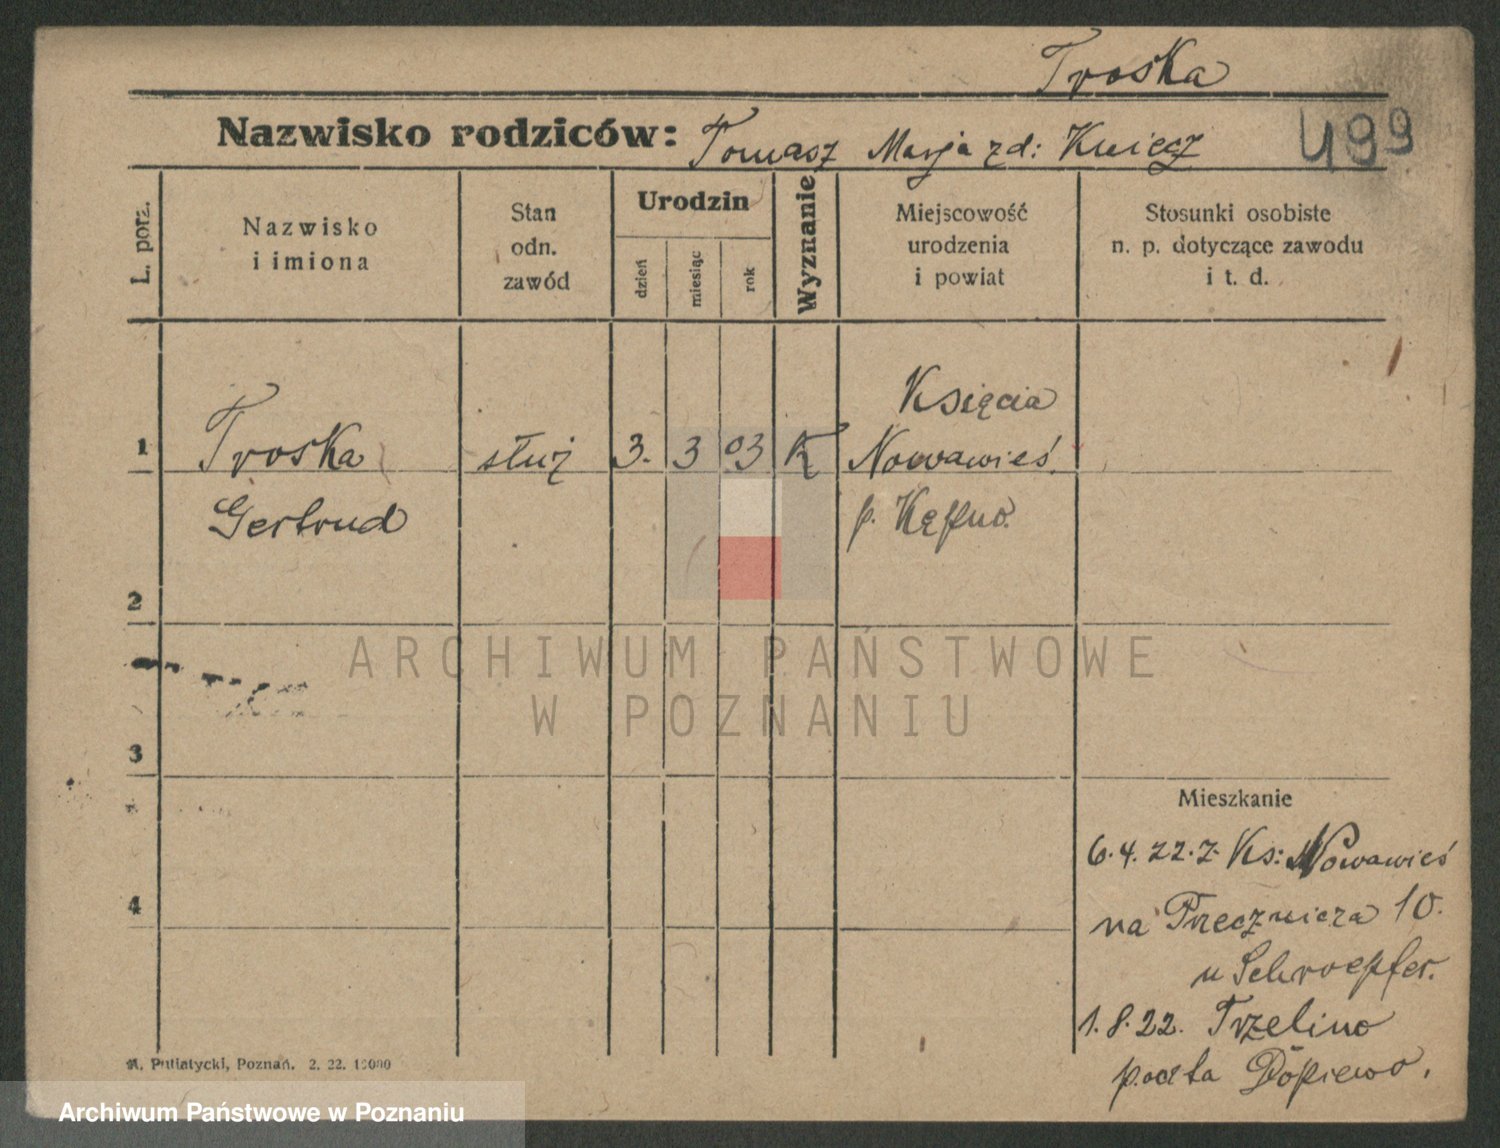 Troska
Nazwisko rodziców: Tomasz Marja zd: Kniecz
499
L. porz.
Nazwisko
i imiona
Stan
odn.
zawód
Urodzin
dzień
miesiąc
rok
Wyznanie
Miejscowość
urodzenia
i powiat
Stosunki osobiste
n. p. dotyczące zawodu
i t. d.
Księcia
1 Troska służ 3. 3 03 K Nowawieś.
Gertrud p. Kępno.
2
ARCHIWUM PAŃSTWOWE
W POZNANIU
3
Mieszkanie
6.4.22. z Ks: Nowawieś
4
na Przecznicza 10.
u Schroepfer.
1.8.22. Trzelino
poczta Dopiewo.
A. Putiatycki, Poznań. 2. 22. 15000
Archiwum Państwowe w Poznaniu